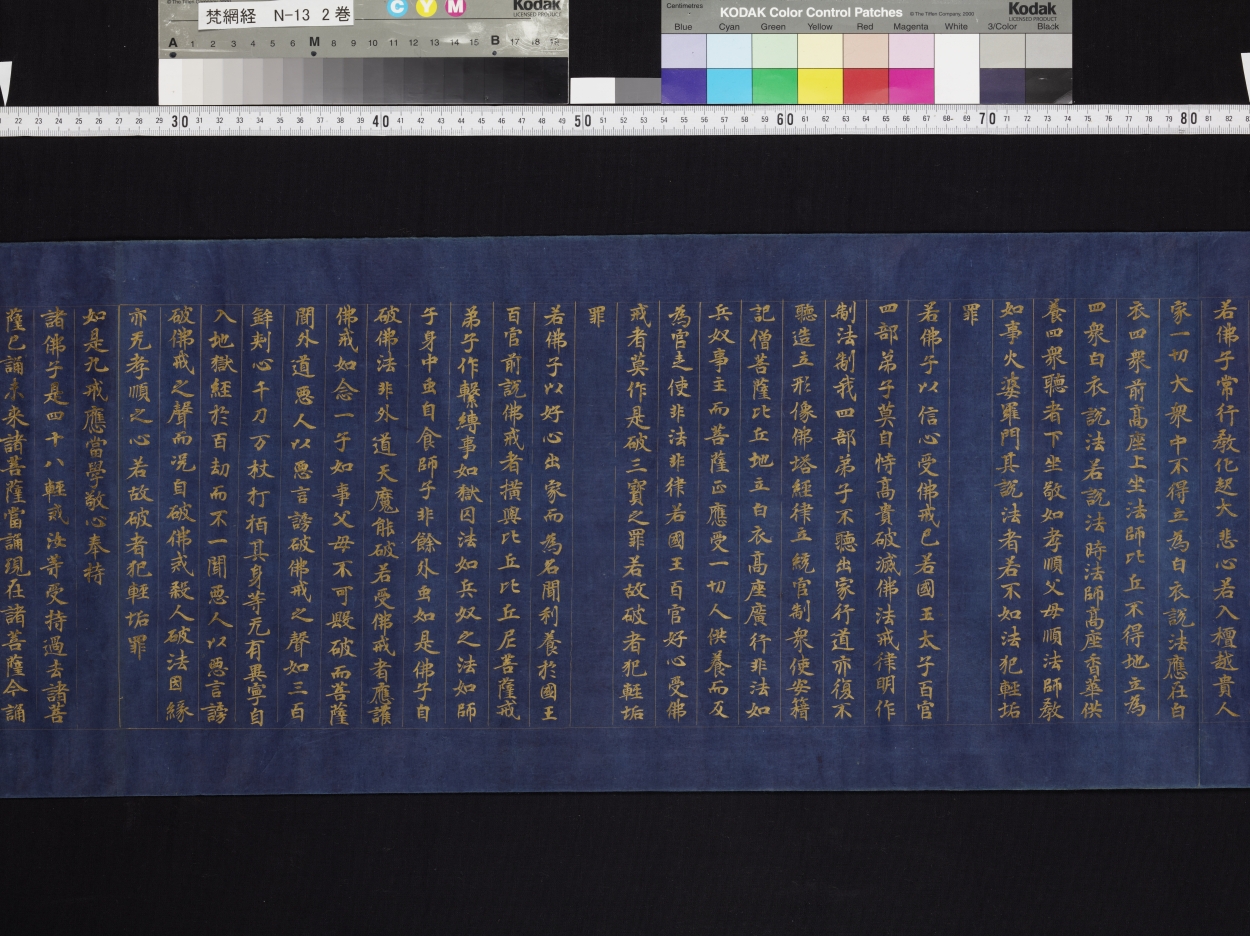 梵網経 N-13 2巻
Kodak
LICENSED PRODUCT
C Y M
A 1 2 3 4 5 6 M 8 9 10 11 12 13 14 15 B 17 18 19
Centimetres
KODAK Color Control Patches
© The Tiffen Company, 2000
Kodak
LICENSED PRODUCT
Blue Cyan Green Yellow Red Magenta White 3/Color Black
22 23 24 25 26 27 28 29 30 31 32 33 34 35 36 37 38 39 40 41 42 43 44 45 46 47 48 49 50 51 52 53 54 55 56 57 58 59 60 61 62 63 64 65 66 67 68 69 70 71 72 73 74 75 76 77 78 79 80 81 82
若佛子常行教化起大悲心若入檀越貴人
家一切大衆中不得立為白衣說法應在白
衣四衆前高座上坐法師比丘不得地立為
四衆白衣說法若說法時法師高座香華供
養四衆聽者下坐敬如孝順父母順法師教
如事火婆羅門其說法者若不如法犯輕垢
罪
若佛子以信心受佛戒已若國王太子百官
四部弟子莫自恃高貴破滅佛法戒律明作
制法制我四部弟子不聽出家行道亦復不
聽造立形像佛塔經律立統官制衆使安籍
記僧菩薩比丘地立白衣高座廣行非法如
兵奴事主而菩薩正應受一切人供養而反
為官走使非法非律若國王百官好心受佛
戒者莫作是破三寶之罪若故破者犯輕垢
罪
若佛子以好心出家而為名聞利養於國王
百官前說佛戒者横興比丘比丘尼菩薩戒
弟子作繫縛事如獄囚法如兵奴之法如師
子身中虫自食師子非餘外虫如是佛子自
破佛法非外道天魔能破若受佛戒者應護
佛戒如念一子如事父母不可毀破而菩薩
聞外道悪人以悪言謗破佛戒之聲如三百
鉾刾心千刀万杖打栢其身等无有異寧自
入地獄經於百劫而不一聞悪人以悪言謗
破佛戒之聲而况自破佛戒殺人破法因緣
亦无孝順之心若故破者犯輕垢罪
如是九戒應當學敬心奉持
諸佛子是四十八輕戒汝等受持過去諸菩
薩已誦未来諸菩薩當誦現在諸菩薩今誦